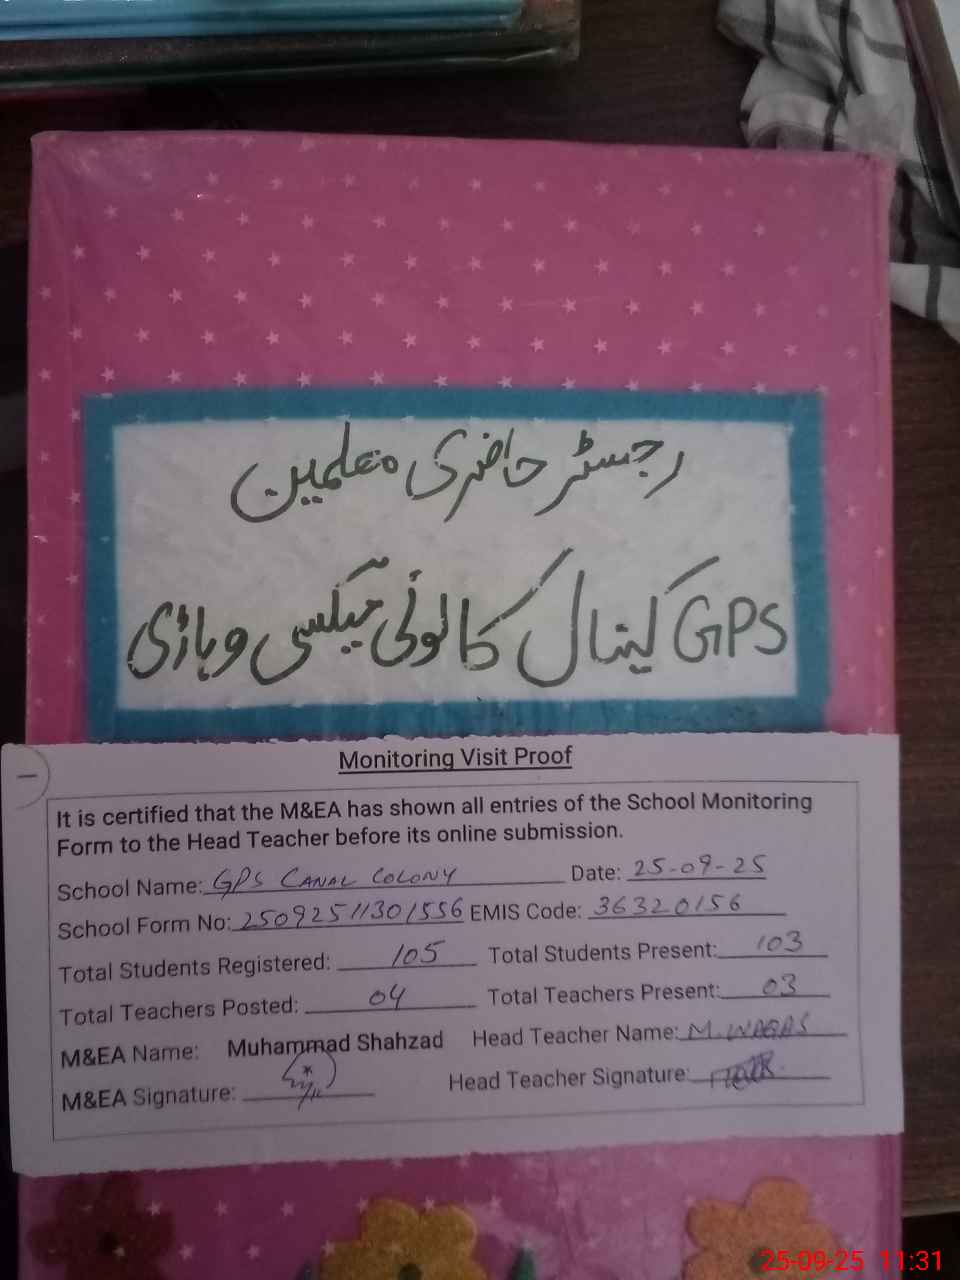 رجسٹر حاضری معلمین
GPS کینال کالونی میلسی وہاڑی
Monitoring Visit Proof
It is certified that the M&EA has shown all entries of the School Monitoring
Form to the Head Teacher before its online submission.
School Name: GPS CANAL COLONY Date: 25-09-25
School Form No: 25092511301556 EMIS Code: 36320156
Total Students Registered: 105 Total Students Present: 103
Total Teachers Posted: 04 Total Teachers Present: 03
M&EA Name: Muhammad Shahzad Head Teacher Name: M. WAQAS
M&EA Signature: Head Teacher Signature:
25-09-25 11:31